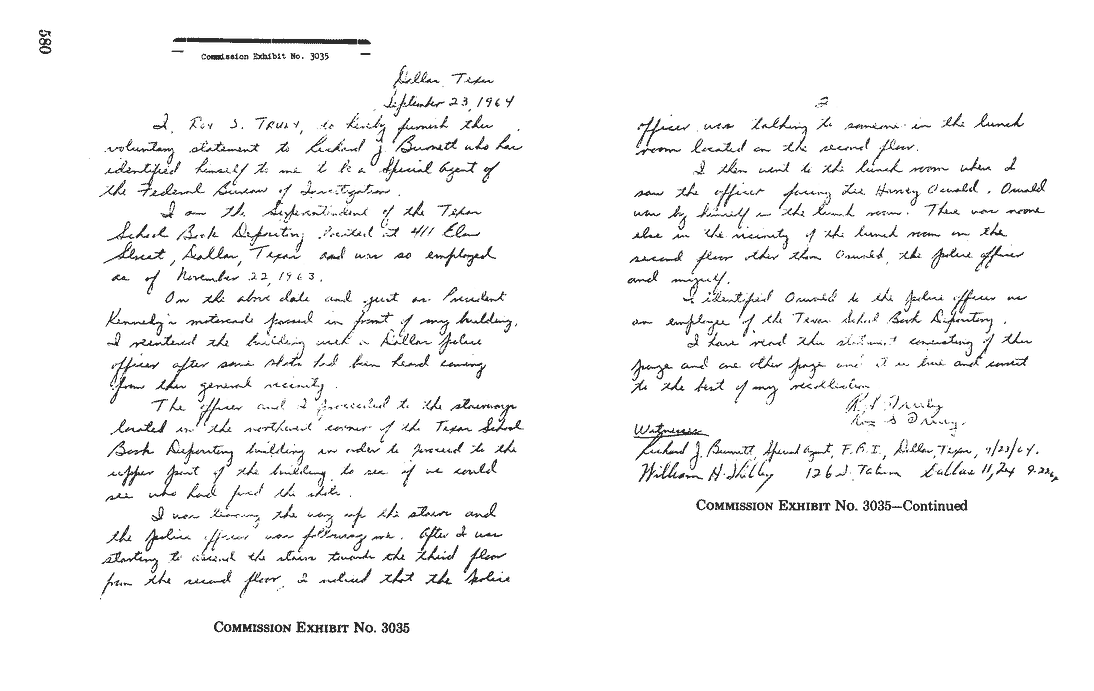 580
Commission Exhibit No. 3035
Dallas, Texas
September 23, 1964
I, ROY S. TRULY, do hereby furnish this
voluntary statement to Richard J. Burnett who has
identified himself to me to be a Special Agent of
the Federal Bureau of Investigation.
I am the Superintendent of the Texas
School Book Depository located at 411 Elm
Street, Dallas, Texas and was so employed
as of November 22, 1963.
On the above date and just as President
Kennedy's motorcade passed in front of my building,
I reentered the building with a Dallas police
officer after some shots had been heard coming
from this general vicinity.
The officer and I proceeded to the stairways
located in the northwest corner of the Texas School
Book Depository building in order to proceed to the
upper part of the building to see if we could
see who had fired the shots.
I was leading the way up the stairs and
the police officer was following me. After I was
starting to ascend the stairs towards the third floor
from the second floor, I noticed that the police
COMMISSION EXHIBIT No. 3035
2
officer was talking to someone in the lunch
room located on the second floor.
I then went to the lunch room where I
saw the officer facing Lee Harvey Oswald. Oswald
was by himself in the lunch room. There was noone
else in the vicinity of the lunch room on the
second floor other than Oswald, the police officer
and myself.
I identified Oswald to the police officer as
an employee of the Texas School Book Depository.
I have read this statement consisting of this
page and one other page and it is true and correct
to the best of my recollection
R S Truly
Roy S Truly
Witnesses
Richard J. Burnett, Special Agent, F.B.I., Dallas, Texas, 9/23/64.
William H. Shelley 126 S. Tatum Dallas 11, Tex
COMMISSION EXHIBIT No. 3035—Continued